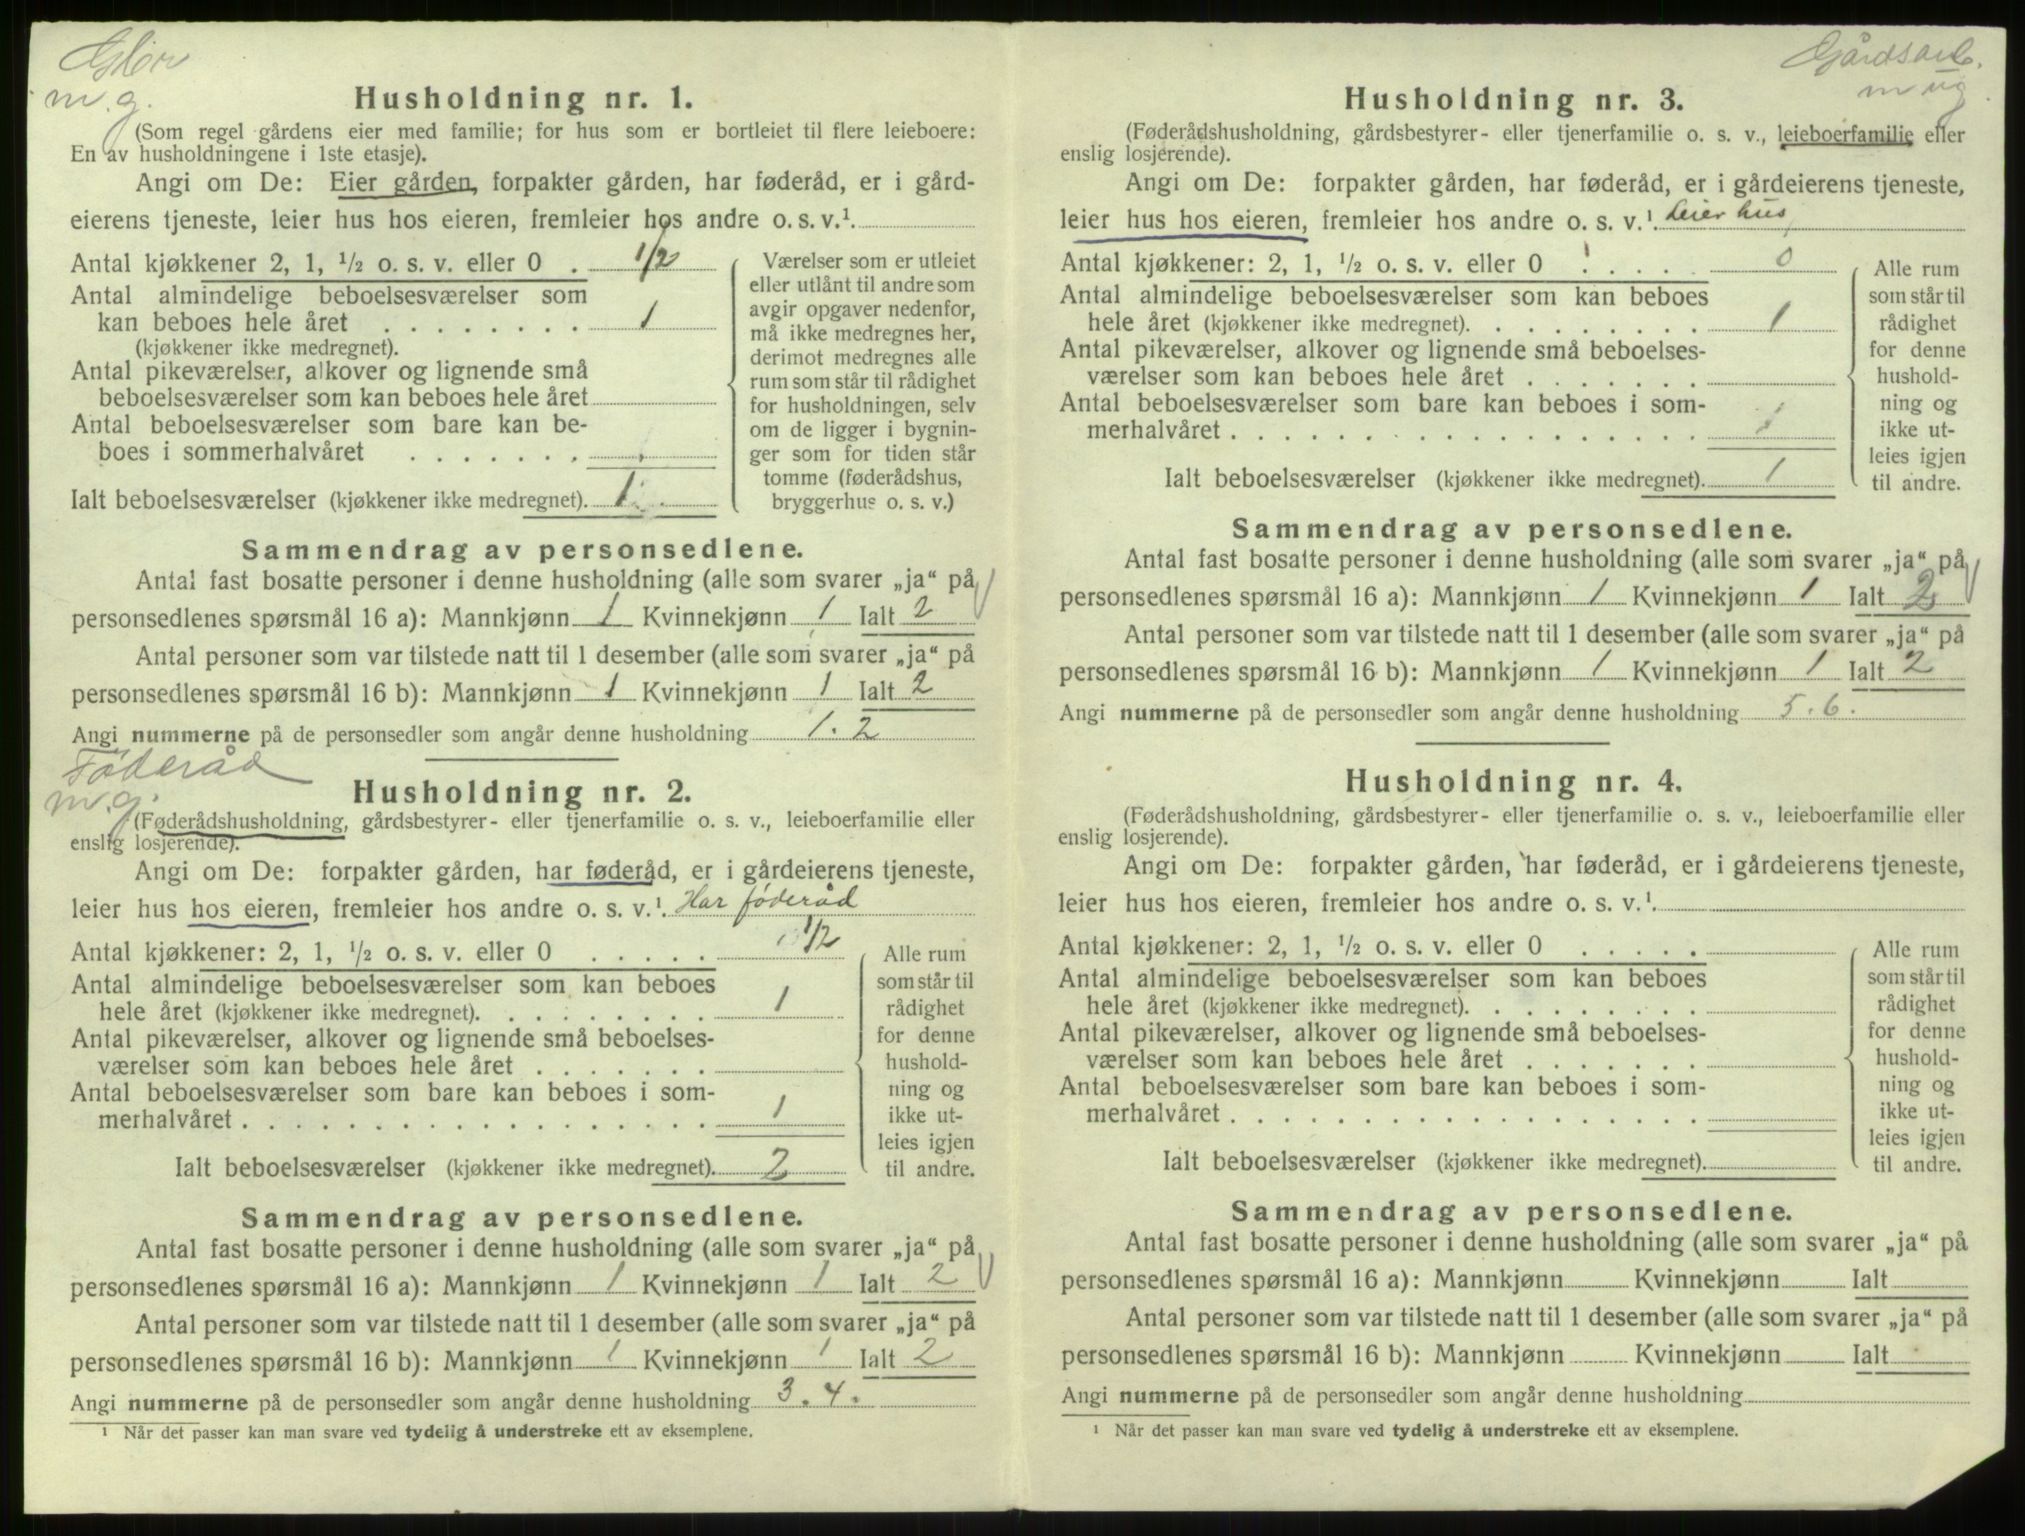 m.g.
Husholdning nr. 1.
(Som regel gårdens eier med familie; for hus som er bortleiet til flere leieboere:
En av husholdningene i 1ste etasje).
Angi om De: Eier gården, forpakter gården, har føderåd, er i gård-
eierens tjeneste, leier hus hos eieren, fremleier hos andre o. s. v.¹
Antal kjøkkener 2, 1, ½ o. s. v. eller 0 . 1/2
Antal almindelige beboelsesværelser som
kan beboes hele året . . . . . . . . 1
(kjøkkener ikke medregnet).
Antal pikeværelser, alkover og lignende små
beboelsesværelser som kan beboes hele året
Antal beboelsesværelser som bare kan be-
boes i sommerhalvåret . . . . . . .
Ialt beboelsesværelser (kjøkkener ikke medregnet). 1
Værelser som er utleiet
eller utlånt til andre som
avgir opgaver nedenfor,
må ikke medregnes her,
derimot medregnes alle
rum som står til rådighet
for husholdningen, selv
om de ligger i bygnin-
ger som for tiden står
tomme (føderådshus,
bryggerhus o. s. v.)
Sammendrag av personsedlene.
Antal fast bosatte personer i denne husholdning (alle som svarer „ja“ på
personsedlenes spørsmål 16 a): Mannkjønn 1 Kvinnekjønn 1 Ialt 2
Antal personer som var tilstede natt til 1 desember (alle som svarer „ja“ på
personsedlenes spørsmål 16 b): Mannkjønn 1 Kvinnekjønn 1 Ialt 2
Angi nummerne på de personsedler som angår denne husholdning 1. 2
Føderåd
m.g.
Husholdning nr. 2.
(Føderådshusholdning, gårdsbestyrer- eller tjenerfamilie o. s. v., leieboerfamilie eller
enslig losjerende).
Angi om De: forpakter gården, har føderåd, er i gårdeierens tjeneste,
leier hus hos eieren, fremleier hos andre o. s. v.¹. Har føderåd
Antal kjøkkener: 2, 1, ½ o. s. v. eller 0 . . . . . 1/2
Antal almindelige beboelsesværelser som kan beboes
hele året (kjøkkener ikke medregnet). . . . . . . . . 1
Antal pikeværelser, alkover og lignende små beboelses-
værelser som kan beboes hele året . . . . . . .
Antal beboelsesværelser som bare kan beboes i som-
merhalvåret . . . . . . . . . . . . . . . . . . 1
Ialt beboelsesværelser (kjøkkener ikke medregnet). 2
Alle rum
som står til
rådighet
for denne
hushold-
ning og
ikke ut-
leies igjen
til andre.
Sammendrag av personsedlene.
Antal fast bosatte personer i denne husholdning (alle som svarer „ja“ på
personsedlenes spørsmål 16 a): Mannkjønn 1 Kvinnekjønn 1 Ialt 2
Antal personer som var tilstede natt til 1 desember (alle som svarer „ja“ på
personsedlenes spørsmål 16 b): Mannkjønn 1 Kvinnekjønn 1 Ialt 2
Angi nummerne på de personsedler som angår denne husholdning 3. 4.
¹ Når det passer kan man svare ved tydelig å understreke ett av eksemplene.
Gårdsarb.
m ug
Husholdning nr. 3.
(Føderådshusholdning, gårdsbestyrer- eller tjenerfamilie o. s. v., leieboerfamilie eller
enslig losjerende).
Angi om De: forpakter gården, har føderåd, er i gårdeierens tjeneste,
leier hus hos eieren, fremleier hos andre o. s. v.¹. Leier hus
Antal kjøkkener: 2, 1, ½ o. s. v. eller 0 . . . . . 0
Antal almindelige beboelsesværelser som kan beboes
hele året (kjøkkener ikke medregnet). . . . . . . . . 1
Antal pikeværelser, alkover og lignende små beboelses-
værelser som kan beboes hele året . . . . . . .
Antal beboelsesværelser som bare kan beboes i som-
merhalvåret . . . . . . . . . . . . . . . . . .
Ialt beboelsesværelser (kjøkkener ikke medregnet). 1
Alle rum
som står til
rådighet
for denne
hushold-
ning og
ikke ut-
leies igjen
til andre.
Sammendrag av personsedlene.
Antal fast bosatte personer i denne husholdning (alle som svarer „ja“ på
personsedlenes spørsmål 16 a): Mannkjønn 1 Kvinnekjønn 1 Ialt 2
Antal personer som var tilstede natt til 1 desember (alle som svarer „ja“ på
personsedlenes spørsmål 16 b): Mannkjønn 1 Kvinnekjønn 1 Ialt 2
Angi nummerne på de personsedler som angår denne husholdning 5. 6.
Husholdning nr. 4.
(Føderådshusholdning, gårdsbestyrer- eller tjenerfamilie o. s. v., leieboerfamilie eller
enslig losjerende).
Angi om De: forpakter gården, har føderåd, er i gårdeierens tjeneste,
leier hus hos eieren, fremleier hos andre o. s. v.¹.
Antal kjøkkener: 2, 1, ½ o. s. v. eller 0 . . . . .
Antal almindelige beboelsesværelser som kan beboes
hele året (kjøkkener ikke medregnet). . . . . . . . .
Antal pikeværelser, alkover og lignende små beboelses-
værelser som kan beboes hele året . . . . . . .
Antal beboelsesværelser som bare kan beboes i som-
merhalvåret . . . . . . . . . . . . . . . . . .
Ialt beboelsesværelser (kjøkkener ikke medregnet).
Alle rum
som står til
rådighet
for denne
hushold-
ning og
ikke ut-
leies igjen
til andre.
Sammendrag av personsedlene.
Antal fast bosatte personer i denne husholdning (alle som svarer „ja“ på
personsedlenes spørsmål 16 a): Mannkjønn Kvinnekjønn Ialt
Antal personer som var tilstede natt til 1 desember (alle som svarer „ja“ på
personsedlenes spørsmål 16 b): Mannkjønn Kvinnekjønn Ialt
Angi nummerne på de personsedler som angår denne husholdning
¹ Når det passer kan man svare ved tydelig å understreke ett av eksemplene.